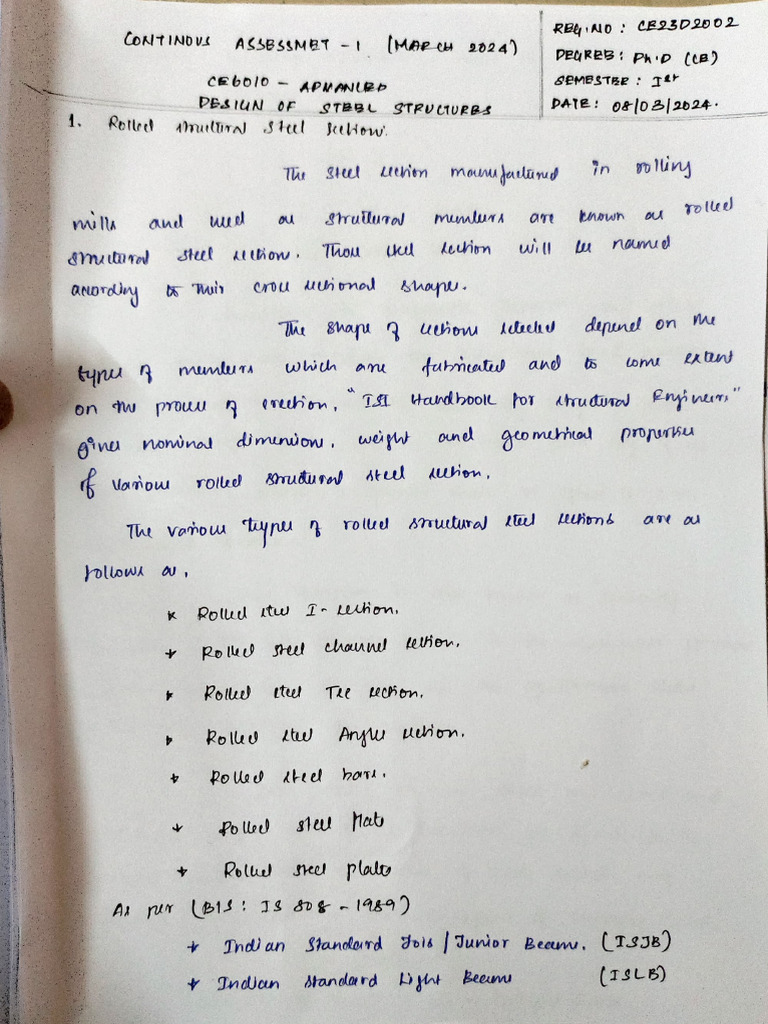 CONTINOUS ASSESSMET - 1 (MARCH 2024)
CE6010 - ADVANCED
DESIGN OF STEEL STRUCTURES
REG.NO : CE23D2002
DEGREE : Ph.D (CE)
SEMESTER : Ist
DATE : 08/03/2024.
1. Rolled structural steel section.
The steel section manufactured in rolling
mills and used as structural members are known as rolled
structural steel section. Those steel section will be named
according to their cross sectional shape.
The shape of sections selected depend on the
types of members which are fabricated and to some extent
on the process of erection, "ISI Handbook for structural Engineers"
gives nominal dimension, weight and geometrical properties
of various rolled structural steel section.
The various types of rolled structural steel sections are as
follows as,
* Rolled steel I - section.
* Rolled steel channel section.
* Rolled steel Tee section.
* Rolled steel Angles section.
* Rolled steel bars.
* Rolled steel flats
* Rolled steel plates
As per (BIS : IS 808 - 1989)
* Indian Standard Jois / Junior Beams. (ISJB)
* Indian Standard Light Beams (ISLB)